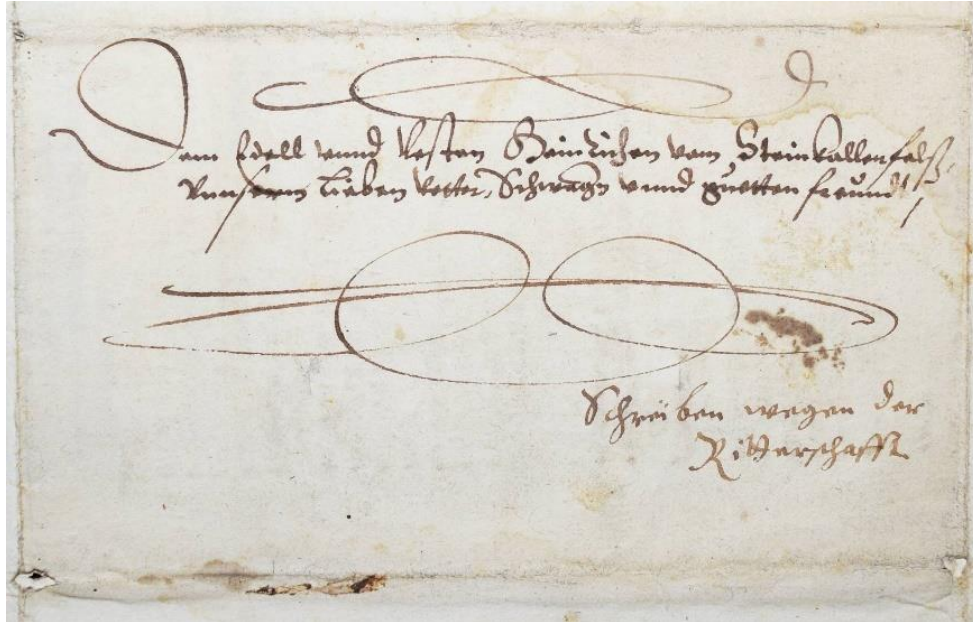 Dem Edell vnnd Vesten Heinrichen vom Steinkallenfelß,
Vnnserm lieben Vetter, Schwagern vnnd guetten freundt,
Schreiben wegen der
Ritterschafft